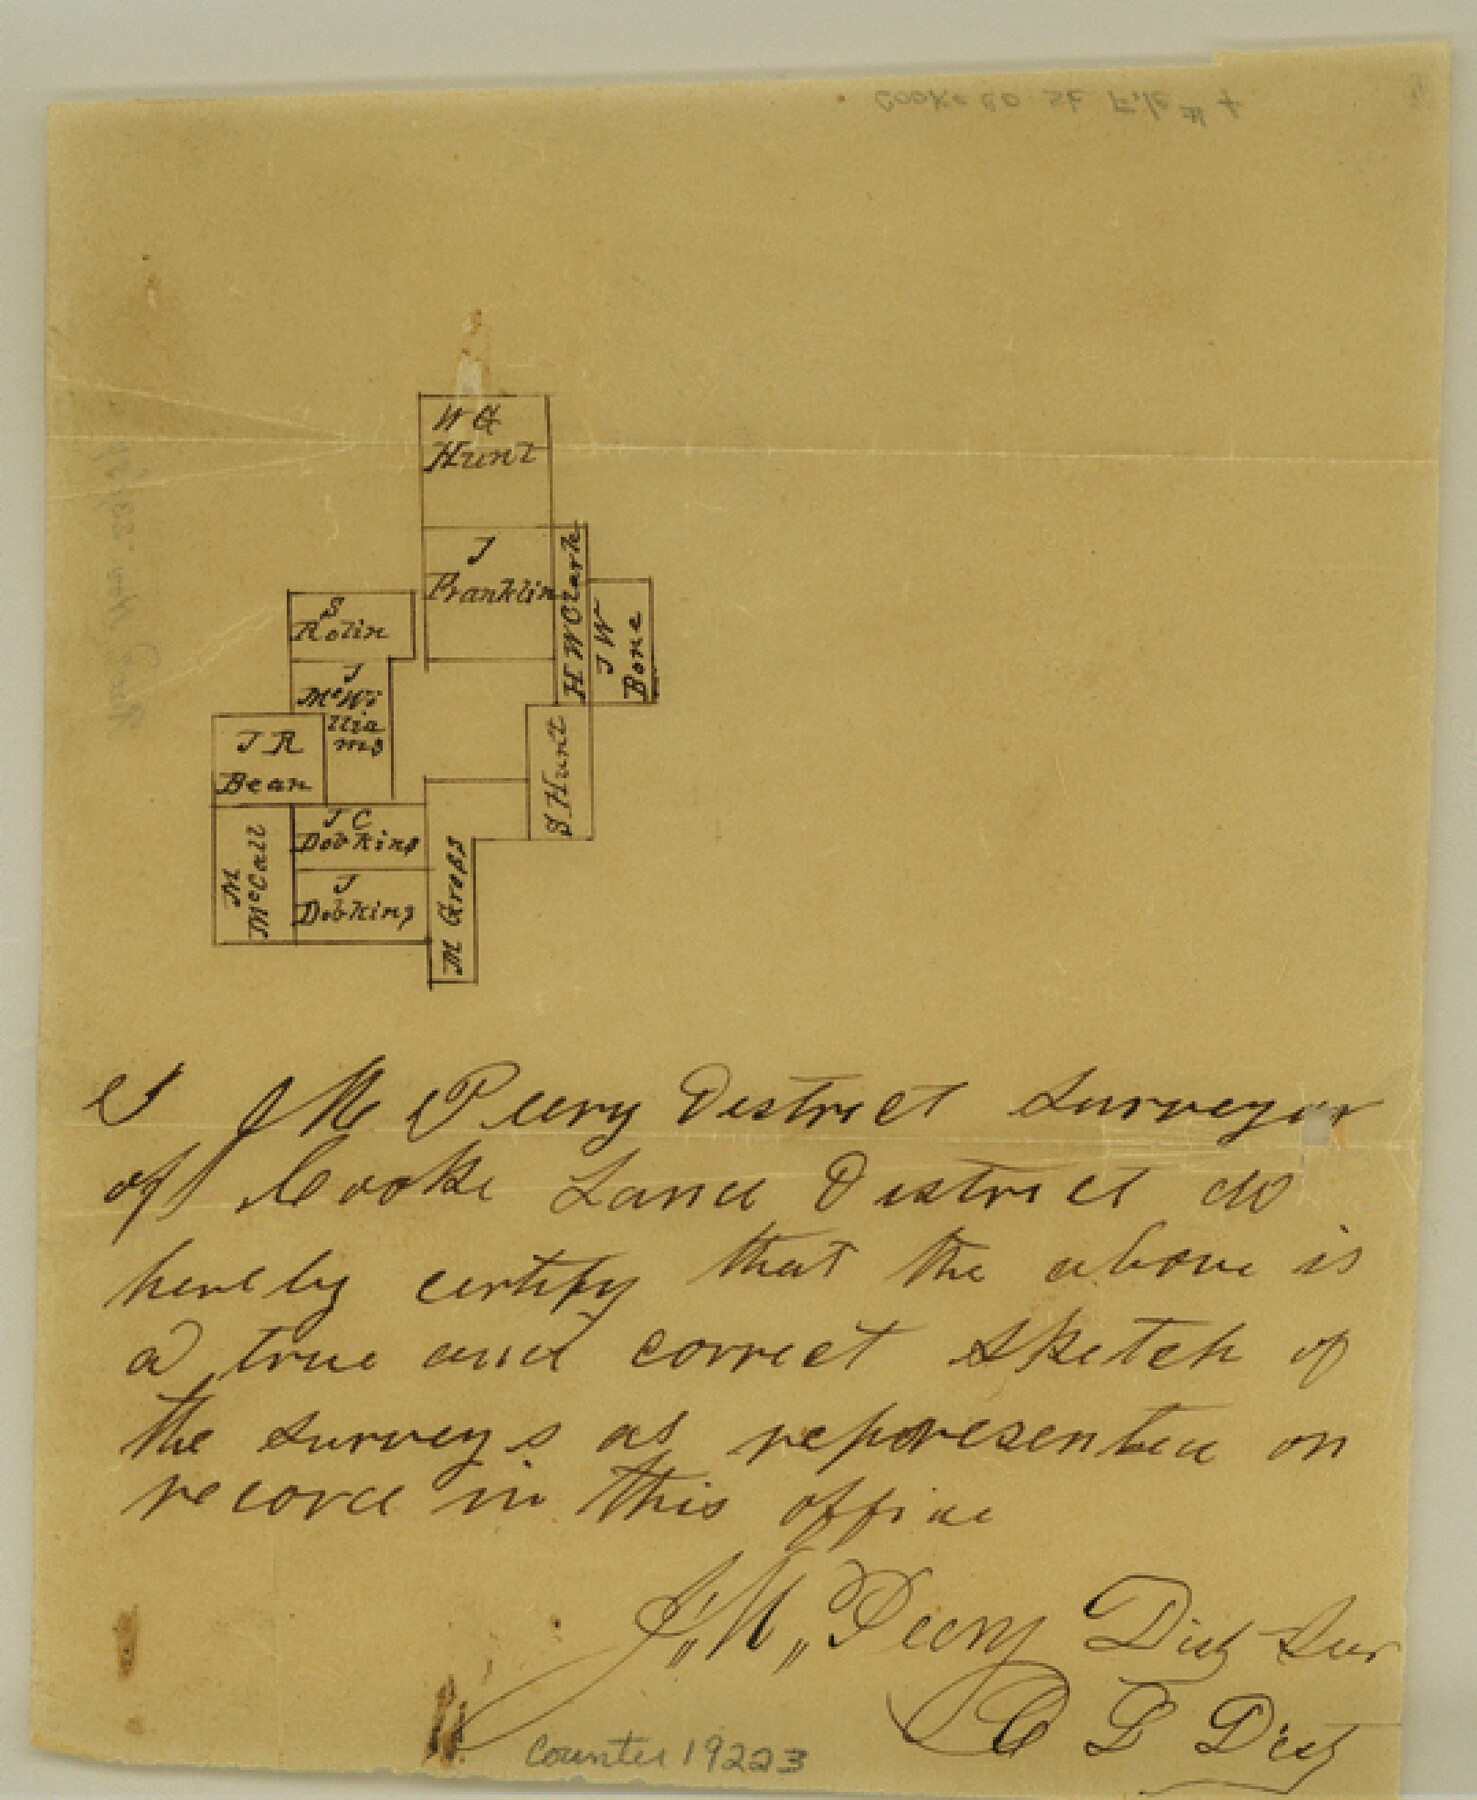 Cooke Co. Sk. File # 4
W G
Hunt
J
Franklin
H W Clark
J W
Bone
S
Rolin
J
McWi
llia
ms
J R
Bean
S Hunt
J C
Dobkins
M
McCall
J
Dobkins
M Gross
I J M Peery District Surveyor
of Cooke Land District do
hereby certify that the above is
a true and correct sketch of
the surveys as represented on
record in this office
J. M. Peery Dist Sur
C L Dist
Counter 19223